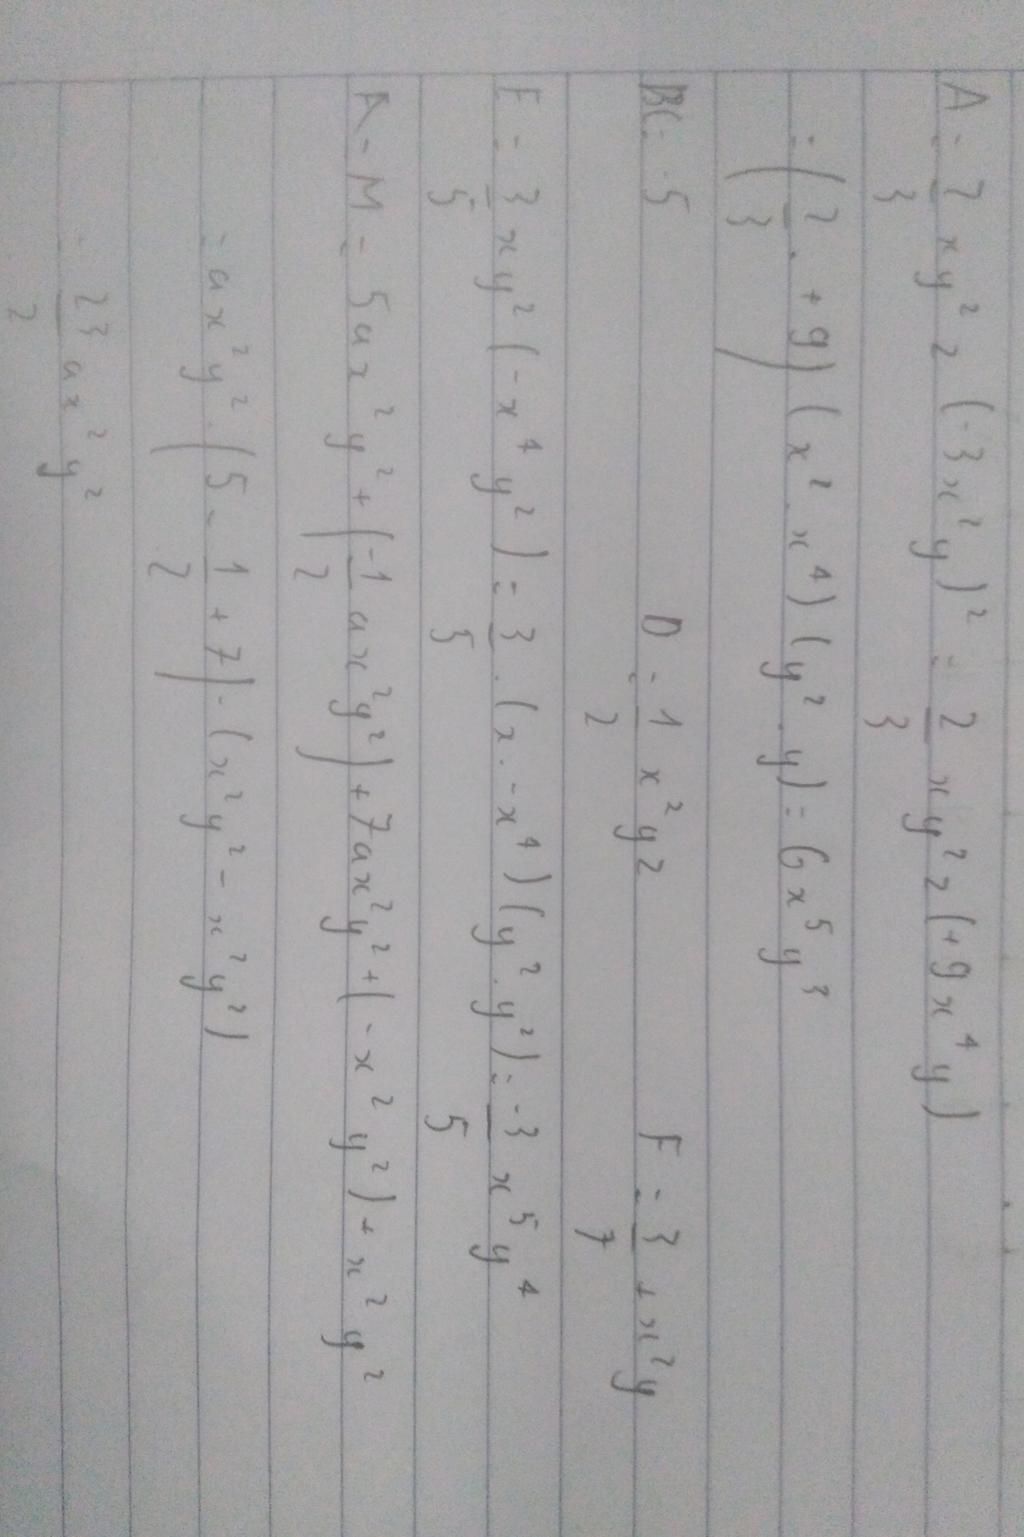 A = 2/3 xy² z (-3x²y)² = 2/3 xy² z (+9x⁴y)
= (2/3 . +9) (x² . x⁴) (y² . y) = 6x⁵y³
C = 5 D = 1/2 x²y² F = 3/7 + x²y
E = 3/5 xy² (-x⁴y²) = 3/5 . (x . -x⁴) (y² . y²) = -3/5 x⁵y⁴
A - M = 5ax²y² + (-1/2 ax²y²) + 7ax²y² + (-x²y²) + x²y²
= ax²y² . (5 - 1/2 + 7) - (x²y² - x²y²)
= 23/2 ax²y²